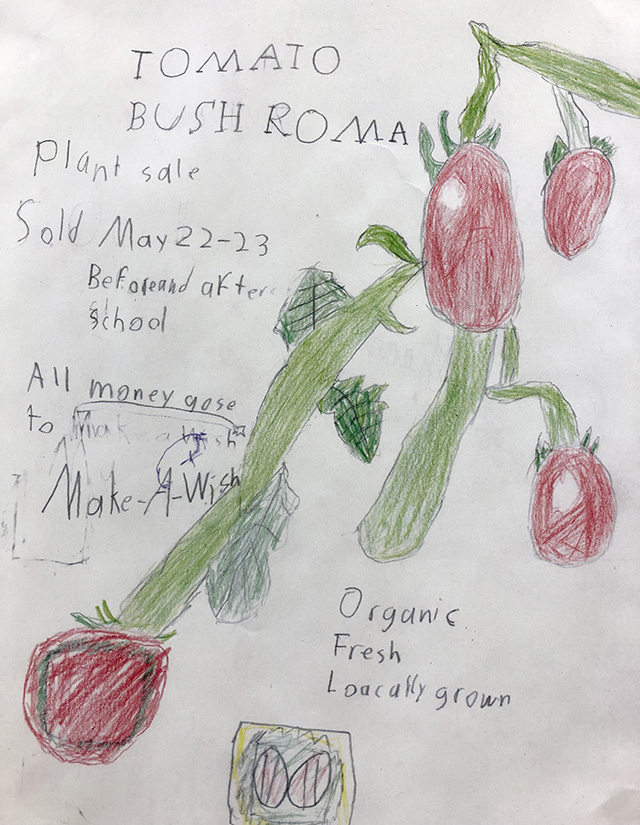 TOMATO
BUSH ROMA
Plant sale
Sold May 22-23
Before and after
school
All money gose
to Make a wish
Make-A-Wish
Organic
Fresh
Loacally grown